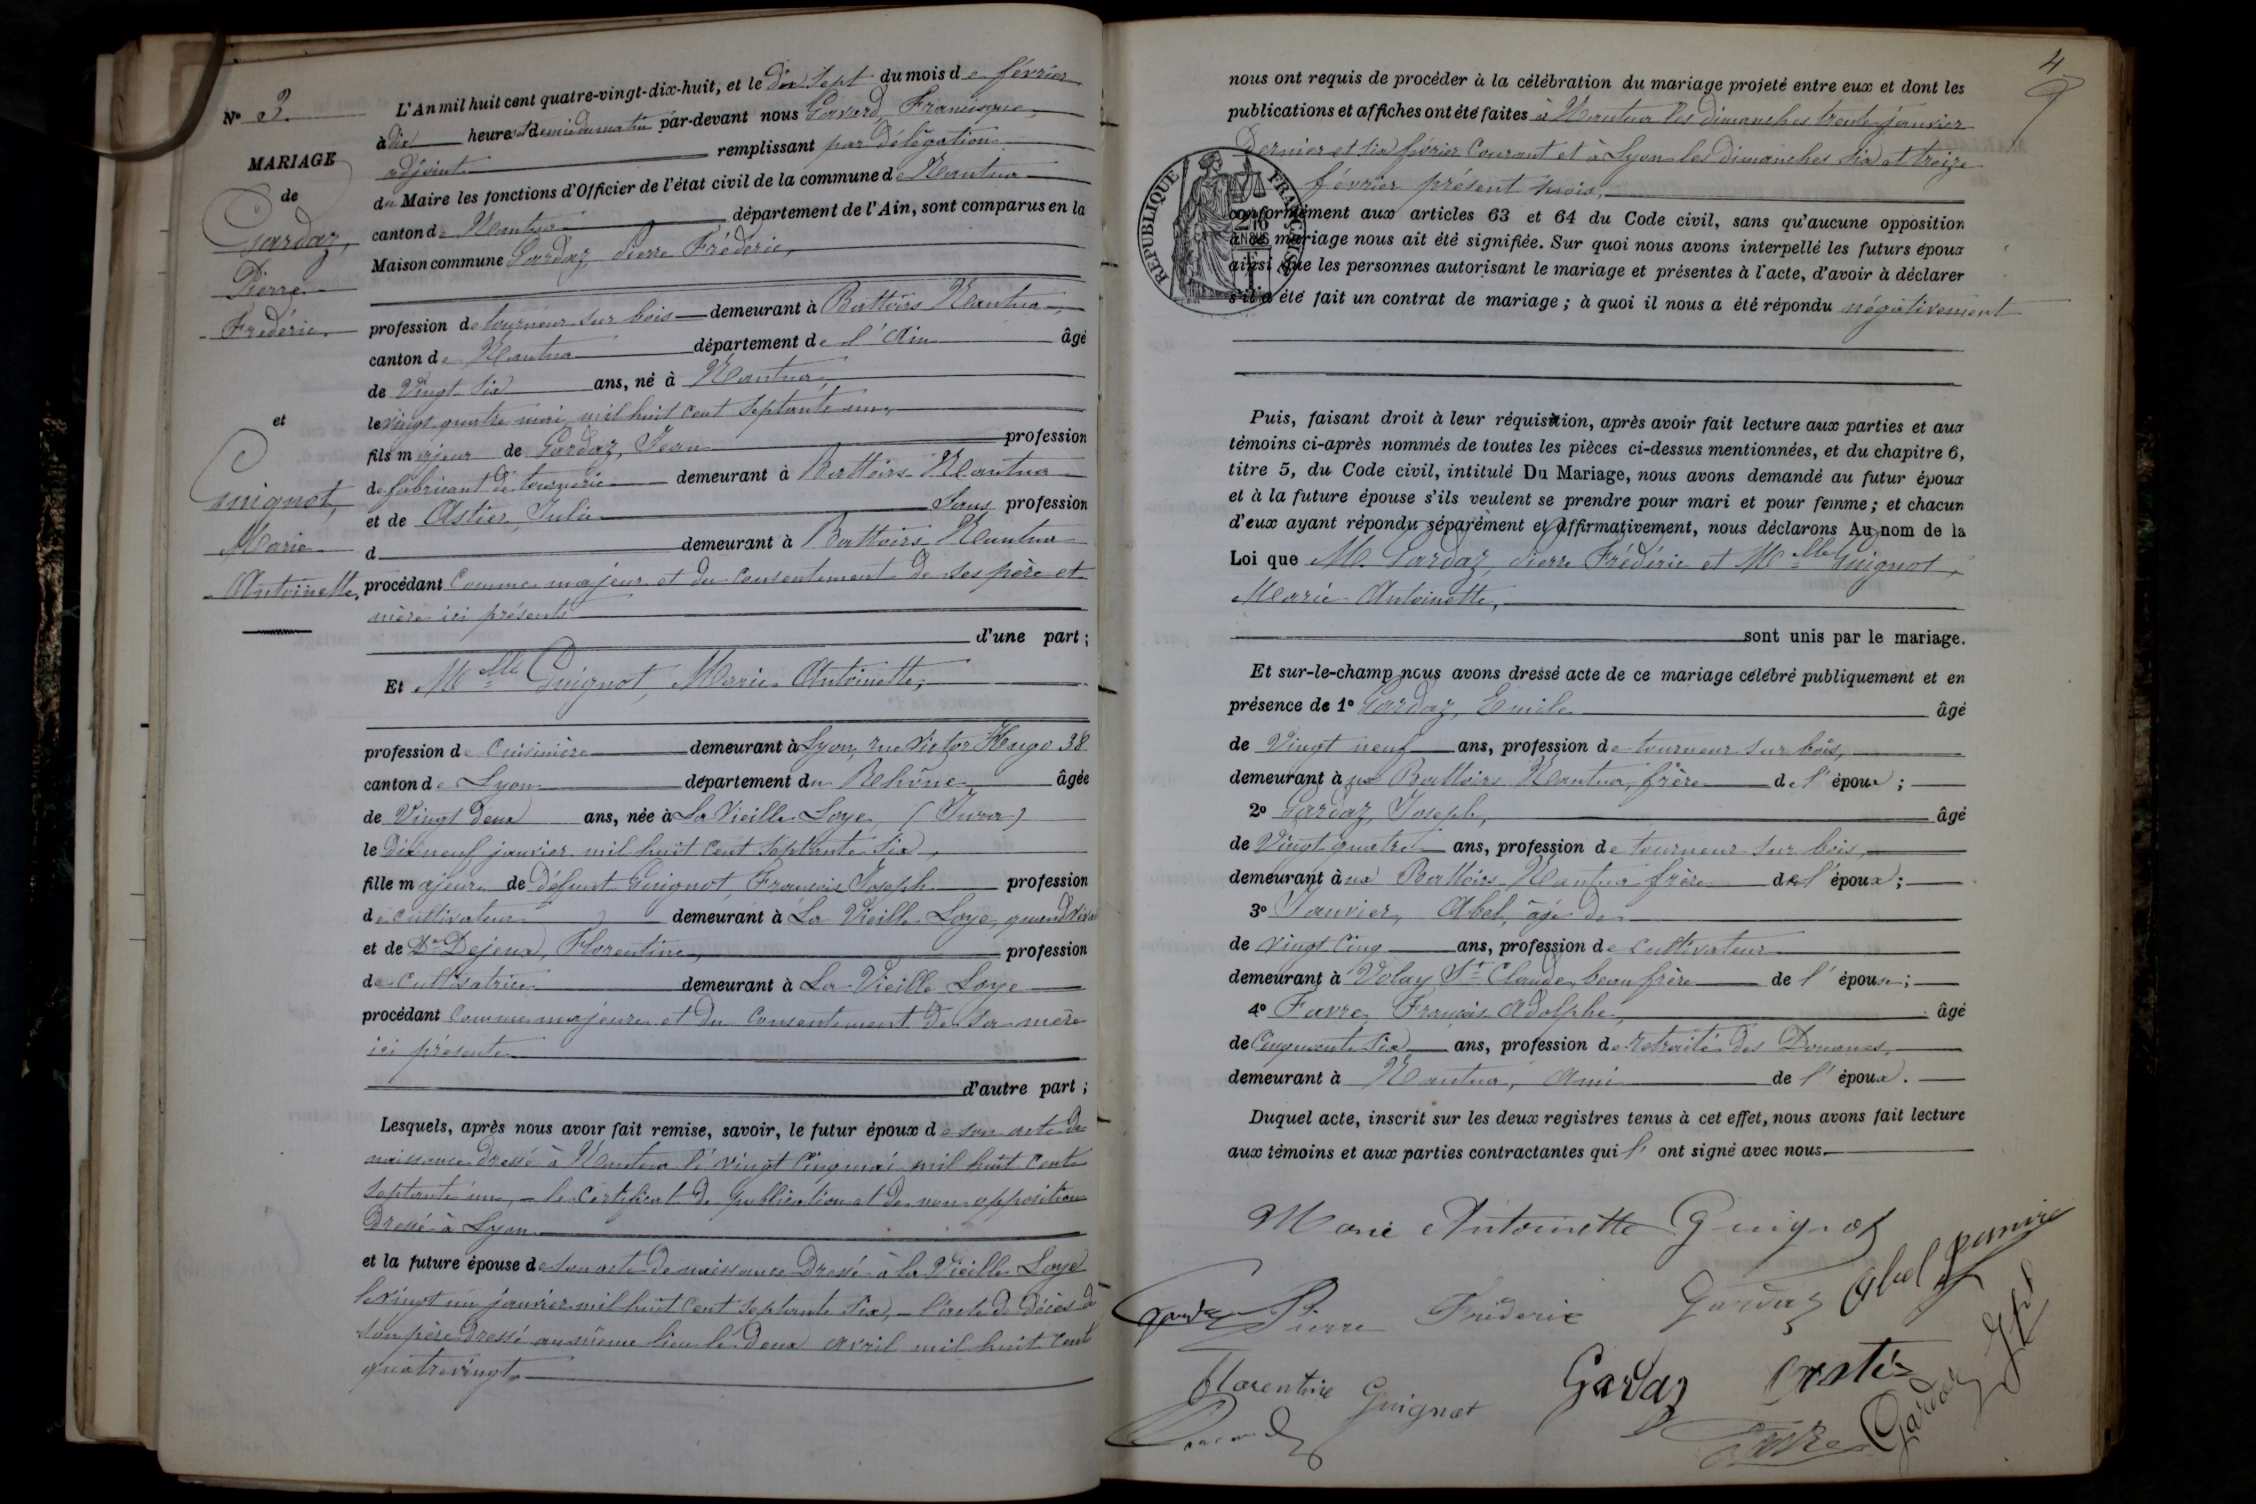 N° 3.
MARIAGE
de
Gardaz,
Pierre
Frédéric,
et
Guignot,
Marie
Antoinette,
L'An mil huit cent quatre-vingt-dix-huit, et le dix sept du mois de février
à dix heures et demie du matin par-devant nous Francisque,
adjoint remplissant par délégation
du Maire les fonctions d'Officier de l'état civil de la commune de Nantua
canton de Nantua département de l'Ain, sont comparus en la
Maison commune Gardaz, Pierre Frédéric,
profession de tourneur sur bois demeurant à Battoirs Nantua,
canton de Nantua département de l'Ain âgé
de Vingt six ans, né à Nantua,
le vingt quatre mai mil huit cent septante un,
fils majeur de Gardaz, Jean profession
de fabricant de tournerie demeurant à Battoirs Nantua
et de Astier, Julie Sans profession
d demeurant à Battoirs Nantua
procédant comme majeur et du consentement de ses père et
mère ici présents
d'une part ;
Et Mlle Guignot, Marie Antoinette,
profession de Cuisinière demeurant à Lyon, rue Victor Hugo 38
canton de Lyon département du Rhône âgée
de Vingt deux ans, née à La Vieille Loye (Jura)
le Dix neuf janvier mil huit cent septante six,
fille majeure de défunt Guignot, François Joseph profession
de cultivateur demeurant à La Vieille Loye, quand vivait
et de De Dejeux, Florentine, profession
de Cultivatrice demeurant à La Vieille Loye
procédant comme majeure et du consentement de sa mère
ici présente
d'autre part ;
Lesquels, après nous avoir fait remise, savoir, le futur époux de son acte de
naissance dressé à Nantua le vingt cinq mai mil huit cent
septante un, - le certificat de publication et de non opposition
Dressé à Lyon
et la future épouse de son acte de naissance dressé à la Vieille Loye
le vingt un janvier mil huit cent septante six, - l'acte de décès de
son père dressé au même lieu le deux avril mil huit cent
quatre vingt.
4
nous ont requis de procéder à la célébration du mariage projeté entre eux et dont les
publications et affiches ont été faites à Nantua les dimanches trente janvier
Dernier et six février courant et à Lyon les dimanches six et treize
février présent mois,
RÉPUBLIQUE FRANÇAISE
conformément aux articles 63 et 64 du Code civil, sans qu'aucune opposition
à ce mariage nous ait été signifiée. Sur quoi nous avons interpellé les futurs époux
ainsi que les personnes autorisant le mariage et présentes à l'acte, d'avoir à déclarer
s'il a été fait un contrat de mariage ; à quoi il nous a été répondu négativement
Puis, faisant droit à leur réquisition, après avoir fait lecture aux parties et aux
témoins ci-après nommés de toutes les pièces ci-dessus mentionnées, et du chapitre 6,
titre 5, du Code civil, intitulé Du Mariage, nous avons demandé au futur époux
et à la future épouse s'ils veulent se prendre pour mari et pour femme ; et chacun
d'eux ayant répondu séparément et affirmativement, nous déclarons Au nom de la
Loi que M. Gardaz, Pierre Frédéric et Mlle Guignot,
Marie Antoinette,
sont unis par le mariage.
Et sur-le-champ nous avons dressé acte de ce mariage célébré publiquement et en
présence de 1° Gardaz, Emile âgé
de Vingt neuf ans, profession de tourneur sur bois,
demeurant à ux Battoirs Nantua, frère de l'époux ;
2° Gardaz, Joseph, âgé
de Vingt quatre ans, profession de tourneur sur bois,
demeurant à ux Battoirs Nantua frère de l'époux ;
3° Janvier, Abel, âgé de
de vingt cinq ans, profession de cultivateur
demeurant à Volay, St Claude, beau frère de l'épouse ;
4° Favre, François Adolphe, âgé
de Cinquante six ans, profession de retraité des Douanes,
demeurant à Nantua, ami de l'époux.
Duquel acte, inscrit sur les deux registres tenus à cet effet, nous avons fait lecture
aux témoins et aux parties contractantes qui l' ont signé avec nous.
Marie Antoinette Guignot
Gardaz Pierre Frédéric Gardaz Abel Janvier
Florentine Guignot Gardaz Astier
Favre Gardaz Jph